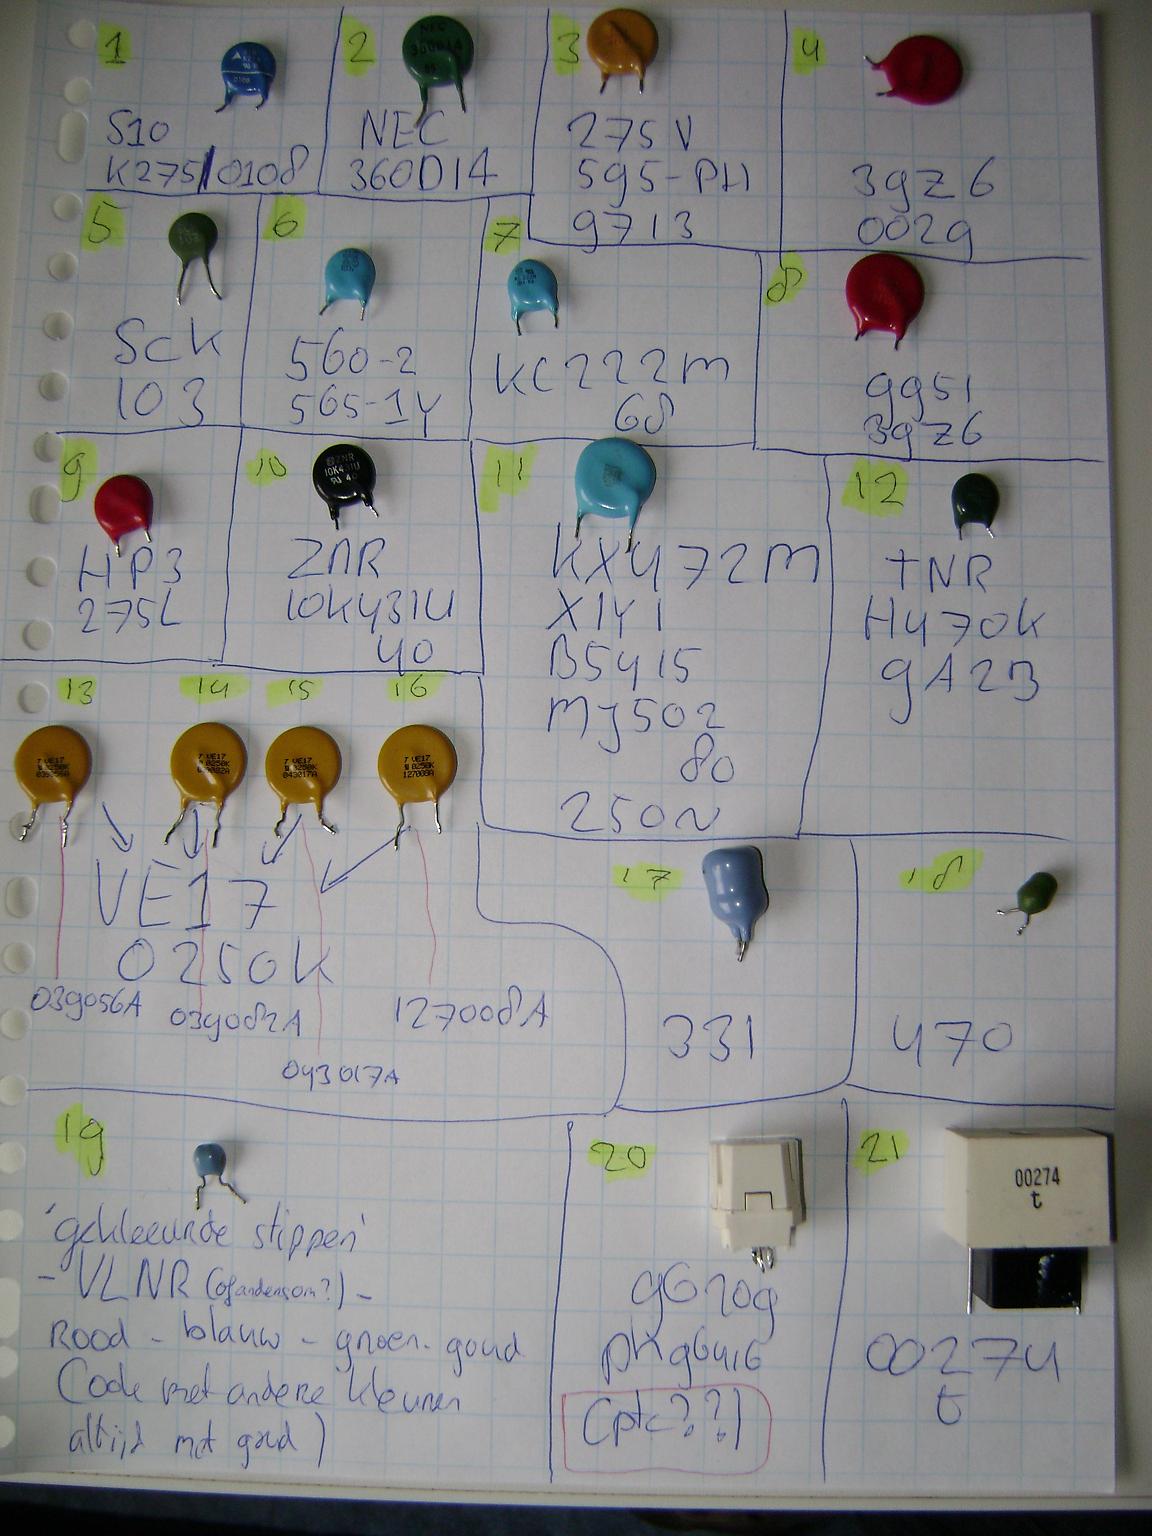 1
S10
K275/0108
2
NEC
360D14
3
275V
595-PH
9713
4
39Z6
0029
5
SCK
103
6
560-2
565-1Y
7
KC222M
68
8
9951
39Z6
9
HP3
275L
10
ZNR
10K431U
40
ZNR
10K431U
40
11
KX472M
X1Y1
B5415
MJ502
80
250N
12
TNR
H470K
9A2B
13
14
15
16
VE17
0250K
039056A
VE17
0250K
039082A
VE17
0250K
043017A
VE17
0250K
127008A
VE17
0250K
039056A
039082A
127008A
043017A
17
331
18
470
19
'gekleurde stippen'
- VLNR (of andersom?) -
Rood - blauw - groen - goud
Code met andere kleuren
altijd met goud)
20
G6209
PK96416
(ptc??)
21
00274
t
00274
t